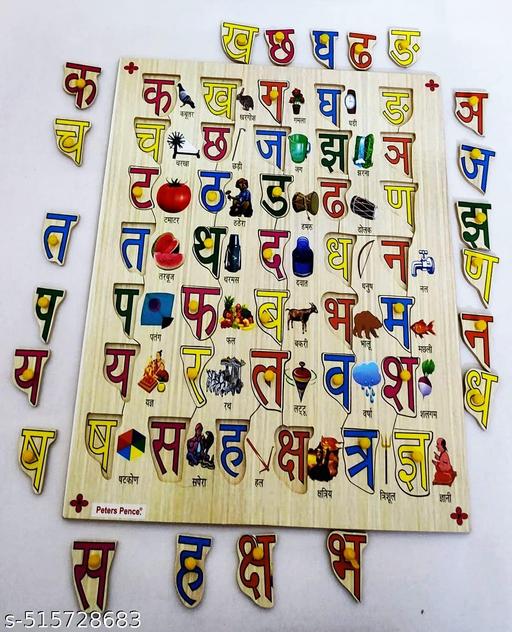 ख छ घ ढ ङ
क
च
त
प
य
ष
ञ
ज
झ
ण
न
ध
क ख ग घ ङ
कबूतर खरगोश गमला घड़ी
च छ ज झ ञ
चरखा छड़ी जग झरना
ट ठ ड ढ ण
टमाटर ठठेरा डमरू ढोलक
त थ द ध न
तरबूज थरमस दवात धनुष नल
प फ ब भ म
पतंग फल बकरी भालू मछली
य र ल व श
यज्ञ रथ लट्टू वर्षा शलगम
ष स ह क्ष त्र ज्ञ
षटकोण सपेरा हल क्षत्रिय त्रिशूल ज्ञानी
Peters Pence
स ह क्ष भ
s-515728683